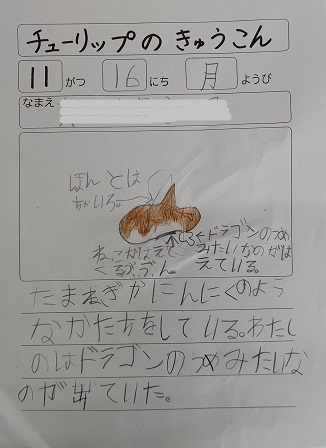 チューリップの きゅうこん
11 がつ 16 にち 月 ようび
なまえ
ほんとは
ちゃいろ。
しろ←ドラゴンのつめ
みたいなのがは
えている。
ねっこがはえて
くるぶぶん。
たまねぎかにんにくのよう
なかたちをしている。わたし
のはドラゴンのつめみたいな
のが出ていた。